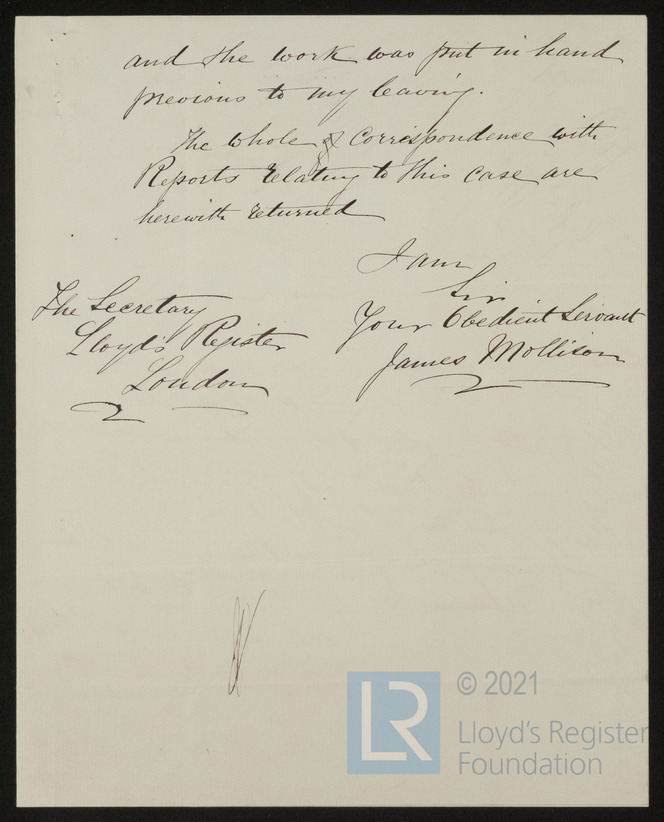 and the work was put in hand
previous to my leaving.
The whole of Correspondence with
Reports relating to this case are
herewith returned
I am
Sir
Your Obedient Servant
James Mollison
The Secretary
Lloyd's Register
London
LR
© 2021
Lloyd's Register
Foundation